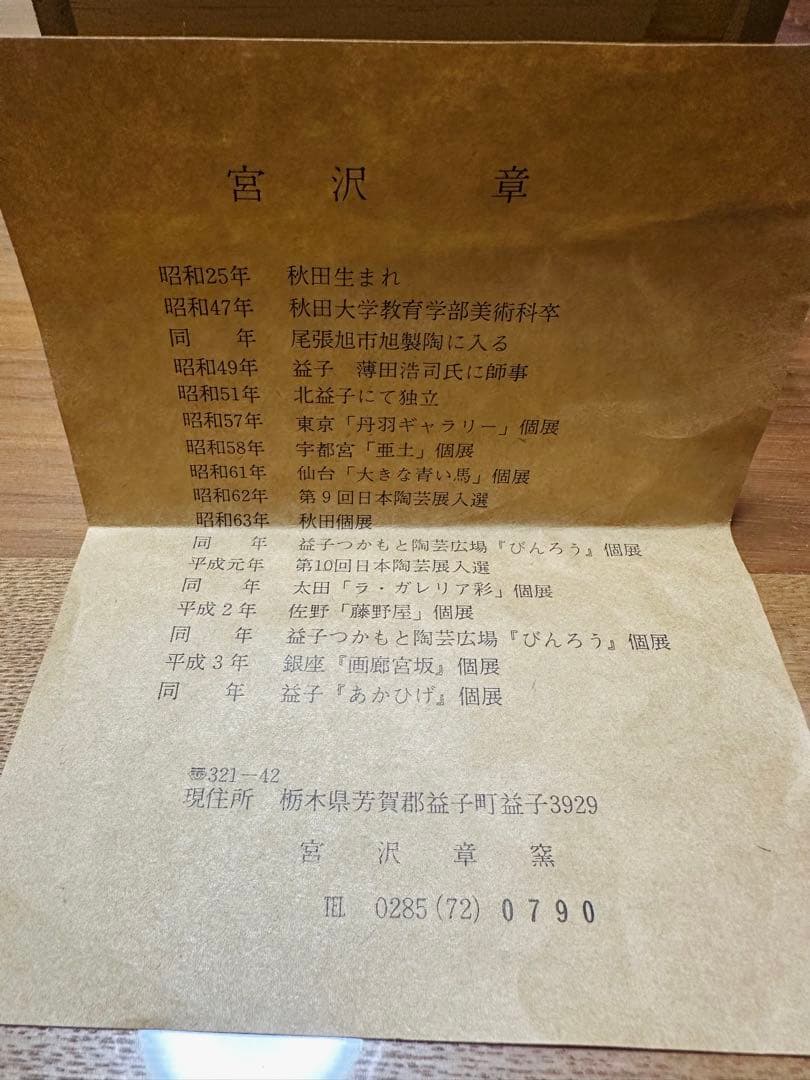 宮沢 章
昭和25年 秋田生まれ
昭和47年 秋田大学教育学部美術科卒
同 年 尾張旭市旭製陶に入る
昭和49年 益子 薄田浩司氏に師事
昭和51年 北益子にて独立
昭和57年 東京「丹羽ギャラリー」個展
昭和58年 宇都宮「亜土」個展
昭和61年 仙台「大きな青い馬」個展
昭和62年 第9回日本陶芸展入選
昭和63年 秋田個展
同 年 益子つかもと陶芸広場『びんろう』個展
平成元年 第10回日本陶芸展入選
同 年 太田「ラ・ガレリア彩」個展
平成2年 佐野「藤野屋」個展
同 年 益子つかもと陶芸広場『びんろう』個展
平成3年 銀座『画廊宮坂』個展
同 年 益子『あかひげ』個展
〠321-42
現住所 栃木県芳賀郡益子町益子3929
宮沢章窯
TEL 0285(72)0790